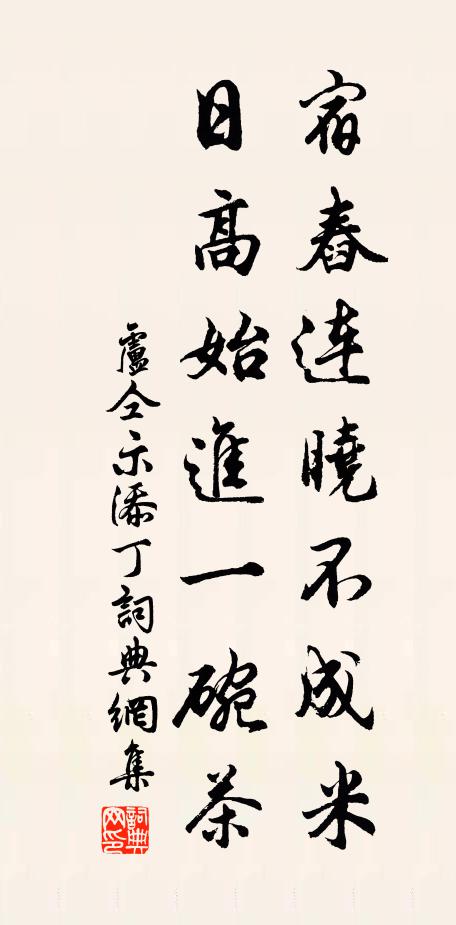 宿舂連曉不成米
日高始進一碗茶
盧仝示添丁詞典網集
詞典網印